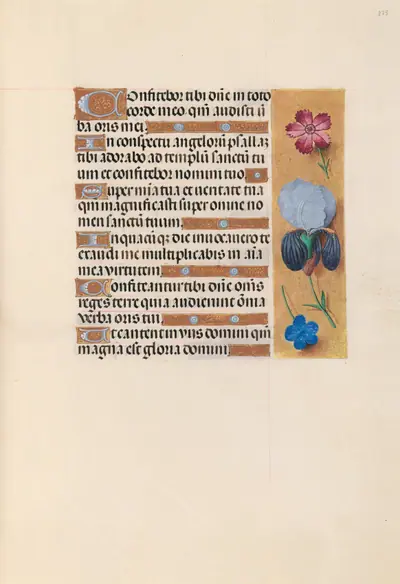 Confitebor tibi dn̄e in toto
corde meo qm̄ audisti ū
ba oris mei
In conspectu angelorū psallā
tibi adorabo ad templū sanctū tu
um et confitebor nomini tuo
Super mīa tua et veritate tua
qm̄ magnificasti super omne no
men sanctū tuum
In quacūq; die invocavero te
exaudi me multiplicabis in aīa
mea virtutem
Confiteantur tibi dn̄e om̄s
reges terre quia audierunt om̄ia
verba oris tui
Et cantent in viis domini qm̄
magna est gloria domini